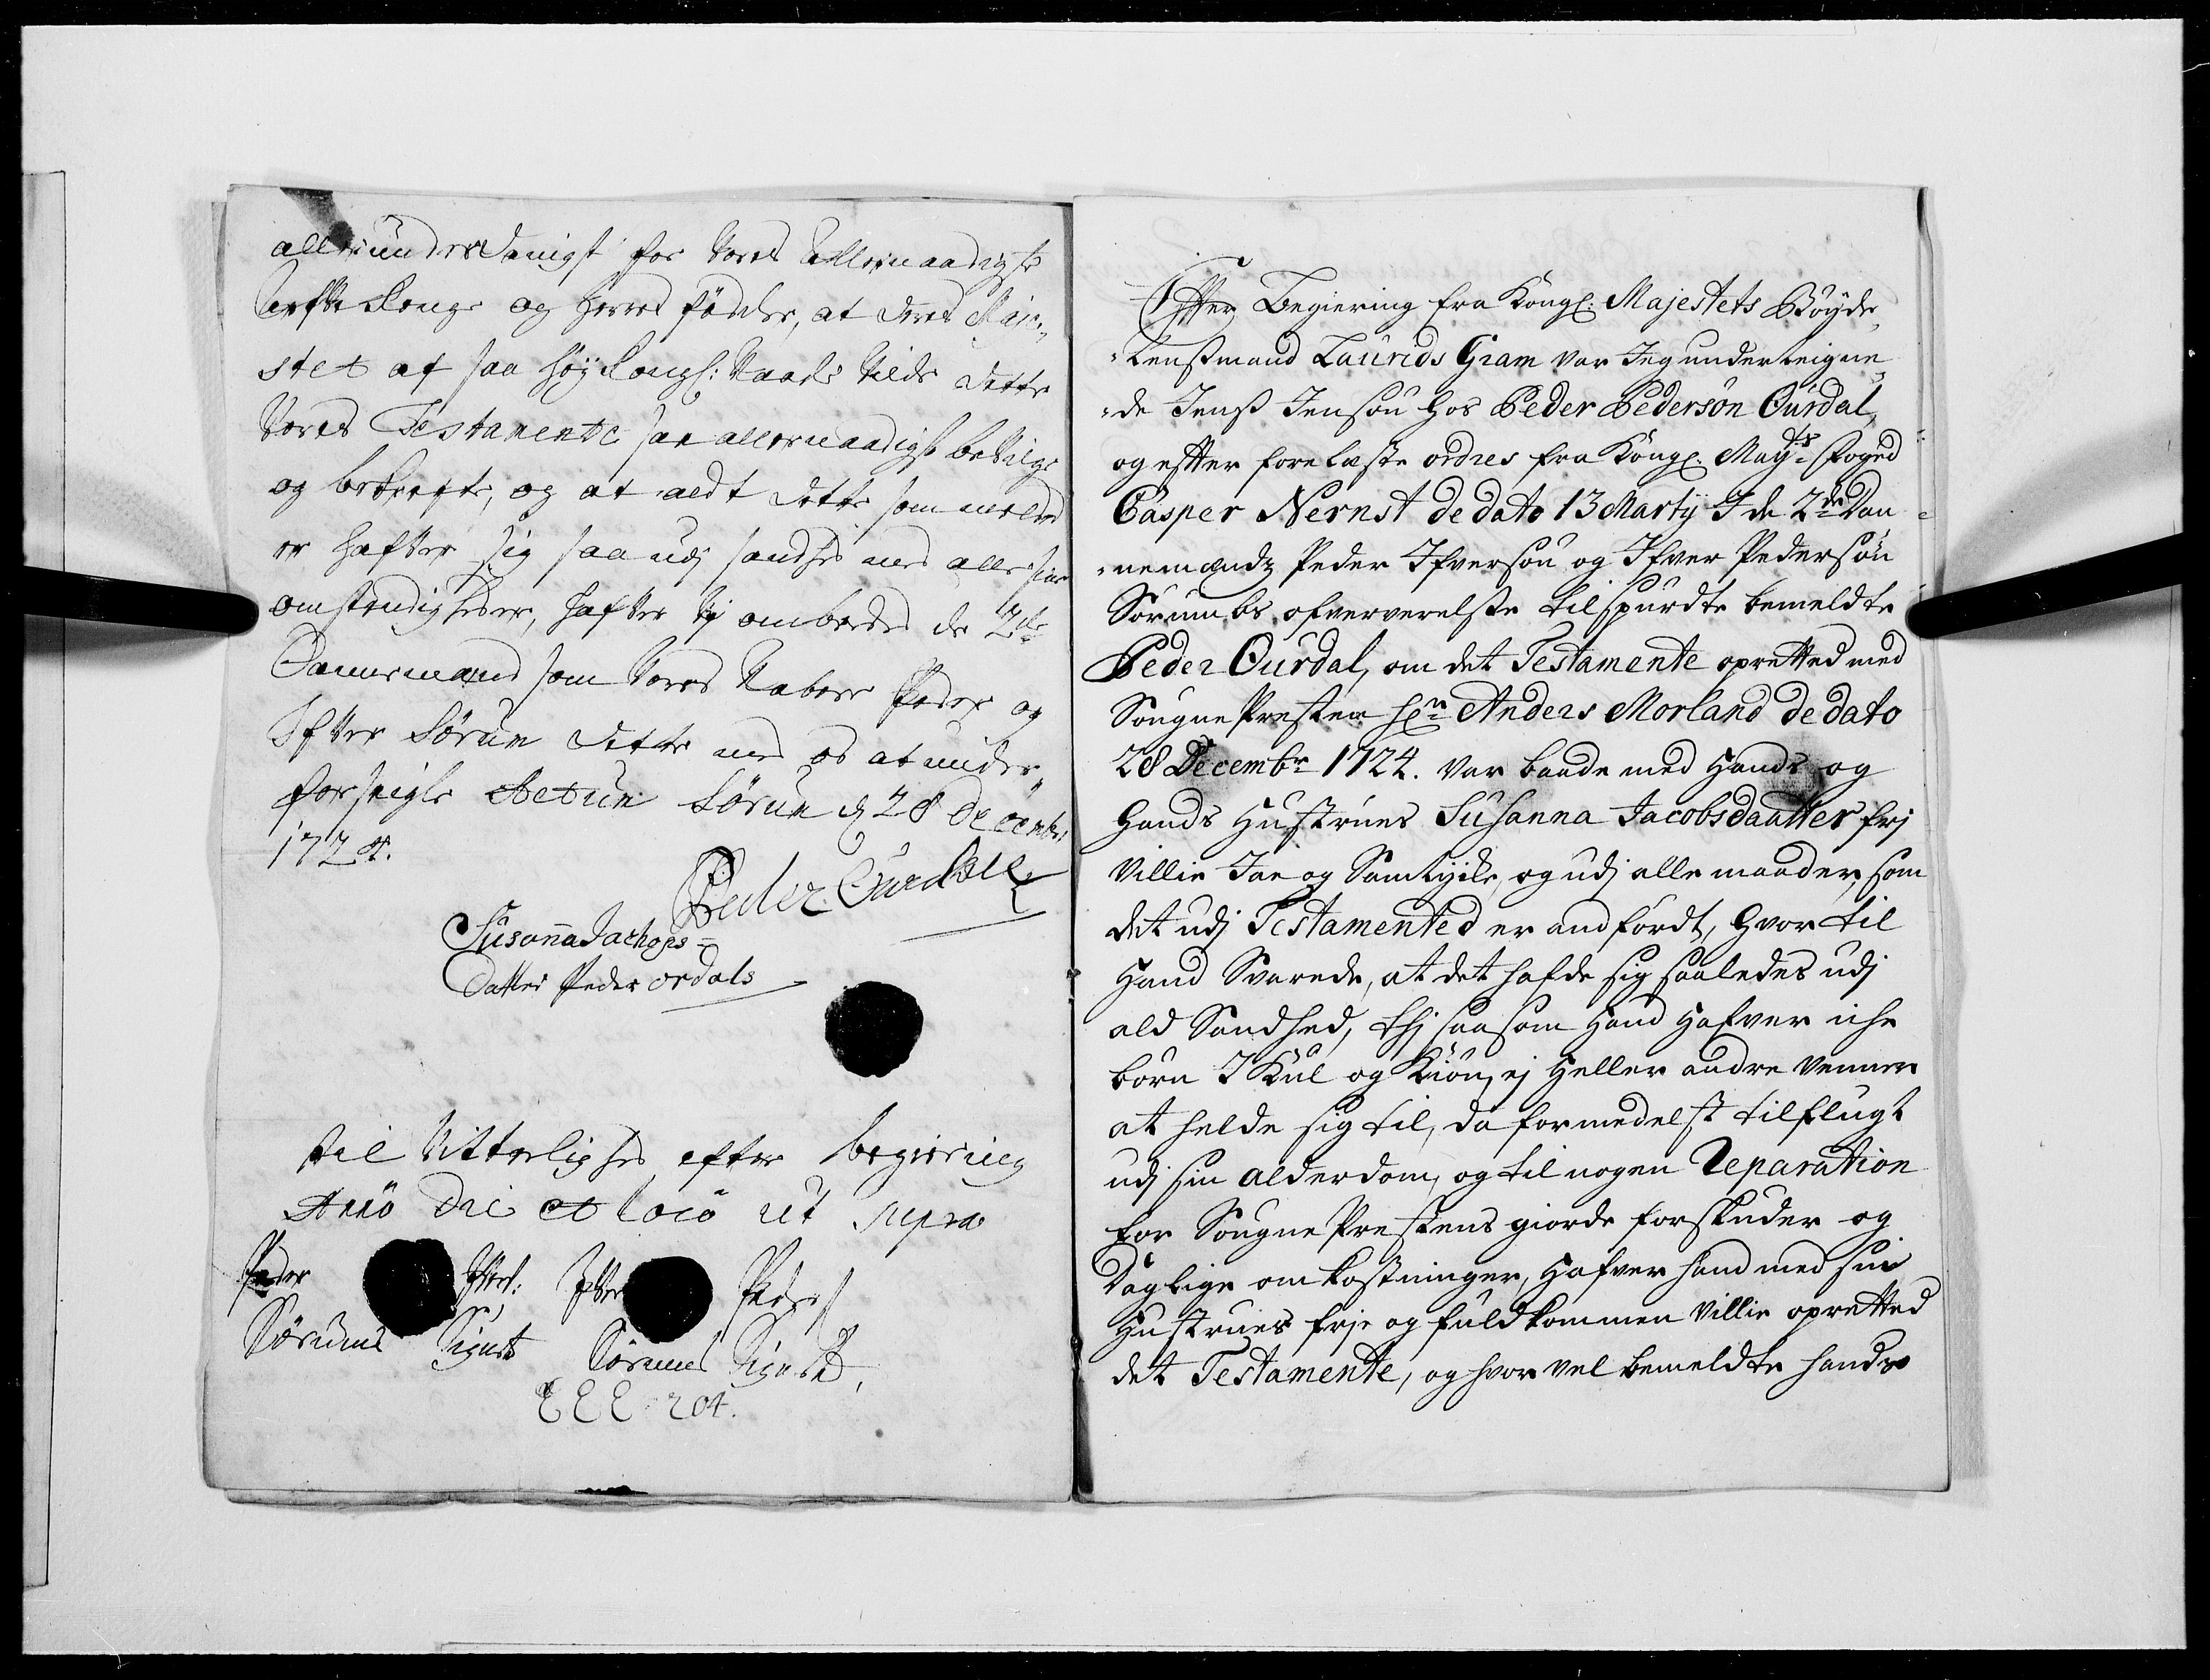 allerunderdanigst for Vores Allernaadigste
Arfve Konge og Herres födder, at deres Maje-
stet af saa höy Kongl: Naade Vilde dette
Vores Testamente saa allernaadigst bevilge
og bekrefte, og at aldt dette som meldet
er hafver sig saa udj sandhed med alle sine
omstendigheder, hafver Vj ombedet de 2de
Dannemænd som Vores Naboer Peder og
Ifver Sörum dette med os at under-
forseigle Actum Sörum d 28 Decembr
1724.
Peder Ourdall
Susanna Jachops=
Datter Peder ordals
til Vitterlighed efter begiering
Anno Die et loco ut supra
Peder Ifvers: Ifver Peders
Sörums Signet Sörums Signet,
204.
Effter Begiering fra Kongl: Majestets Böyde-
-Lensmand Laurids Gram var Jeg underteigne-
-de Jens Jensøn hos Peder Pedersön Ourdal,
og effter forelæste ordres fra Kongl: Mayts Foged
Casper Nernst de dato 13 Martij I de 2de Dan-
-nemændz Peder Ifversøn og Ifver Pedersön
Sörumbs ofververelse tilspurdte bemeldte
Peder Ourdal, om det Testamente opretted med
Sougne Presten Hrn Anders Morland de dato
28 Decembr 1724. var baade med Hands og
Hands Hustrues Susanna Jacobsdaatter frj
Villie Jae og Samtycke, og udj alle maader, som
det udj Testamented er andfördt, hvor til
Hand Svarede, at det hafde sig saaledes udj
ald Sandhed, thj saasom Hand Hafver iche
börn I Kul og Kiön, ej Heller andre Venner
at helde sig til, da formedelst tilflugt
udj sin alderdom, og til nogen Reparation
for Sougne Prestens giorde forskuder og
Daglige omkostninger, Hafver hand med sin
Hustrues frje og fuldkommen Villie opretted
det Testamente, og hvor vel bemeldte hands